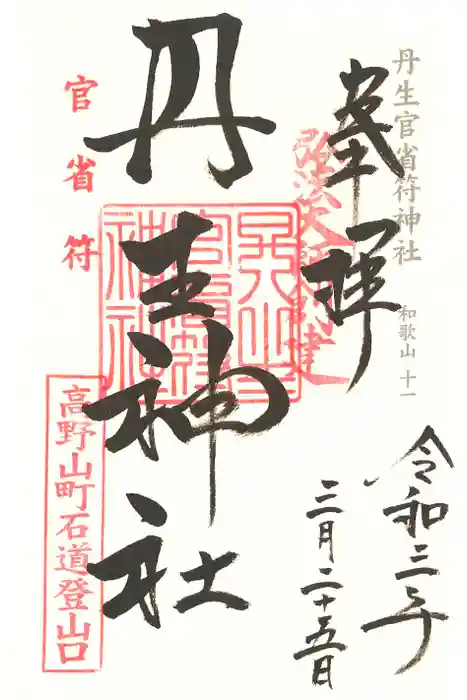 丹生官省符神社
和歌山 十一
奉拝
弘法大師創建
令和三年
三月二十五日
丹生神社
丹生官省符神社
官省符
高野山町石道登山口